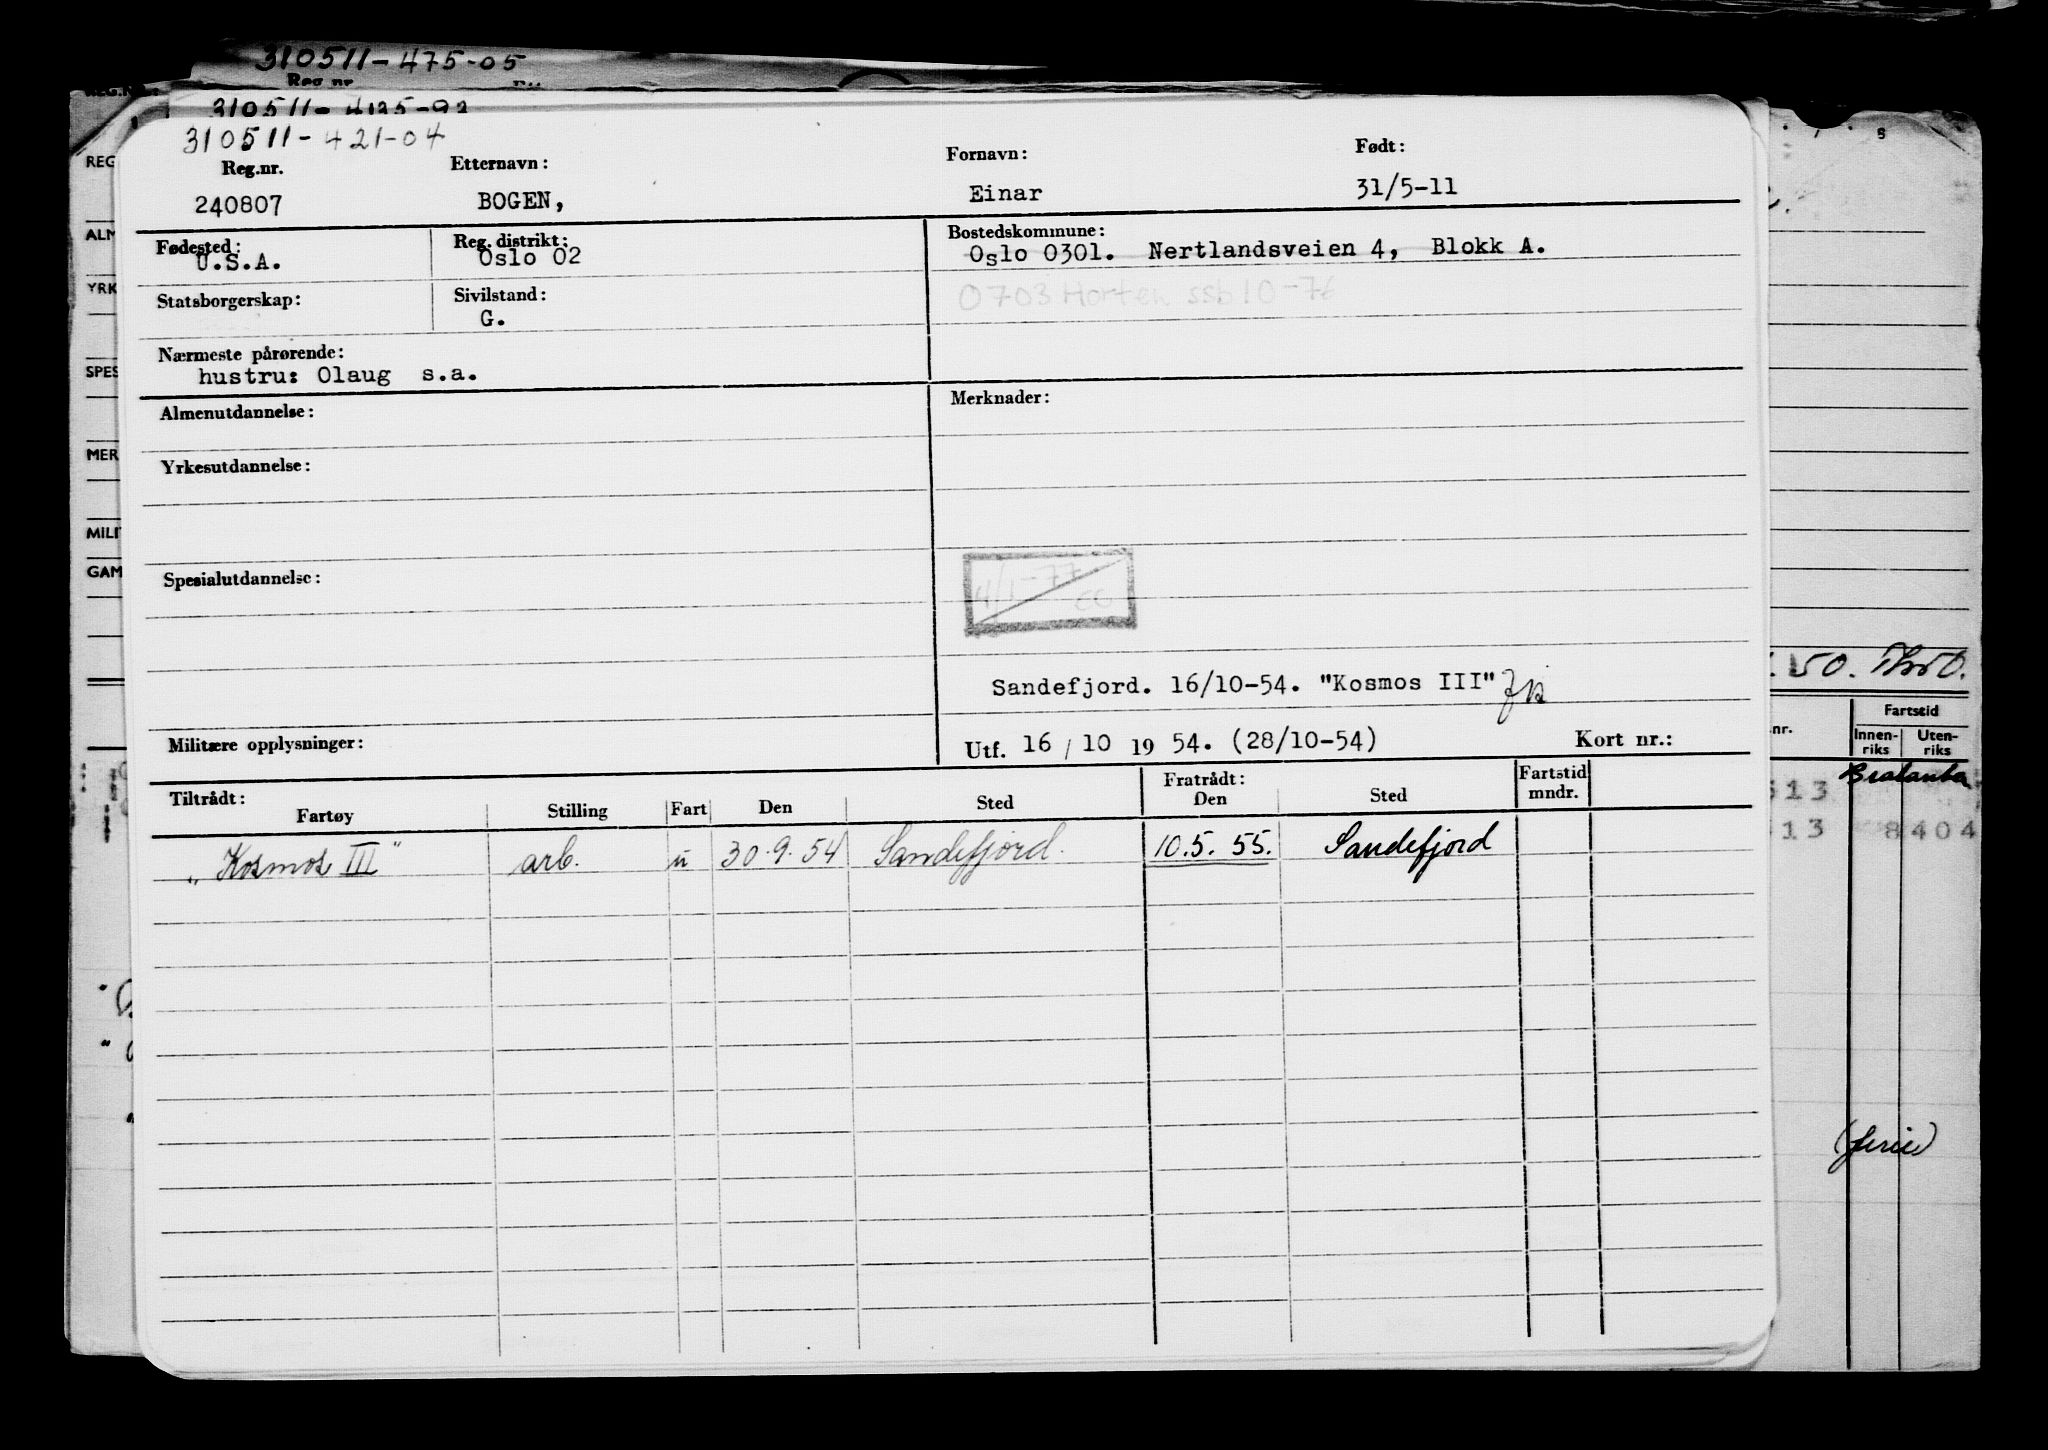 310511-475-05
Reg.nr.
310511-4125-92
310511-421-04
Reg.nr. Etternavn: Fornavn: Født:
240807 BOGEN, Einar 31/5-11
Fødested: Reg. distrikt: Bostedskommune:
U.S.A. Oslo 02 Oslo 0301. Nertlandsveien 4, Blokk A.
0703 Horten ssb 10-76
Statsborgerskap: Sivilstand:
G.
Nærmeste pårørende:
hustru: Olaug s.a.
Almenutdannelse: Merknader:
Yrkesutdannelse:
Spesialutdannelse:
4/1-77
Sandefjord. 16/10-54. "Kosmos III"
Militære opplysninger: Utf. 16/10 19 54. (28/10-54) Kort nr.:
Tiltrådt: Fratrådt: Fartstid
Fartøy Stilling Fart Den Sted Den Sted mndr.
"Kosmos III" arb. u 30.9.54 Sandefjord. 10.5.55. Sandefjord
REG
ALM
YRK
SPES
MER
MILI
GAM
50.
nr. Fartstid
Innen-riks Uten-riks
513
513 8404
(ferie)